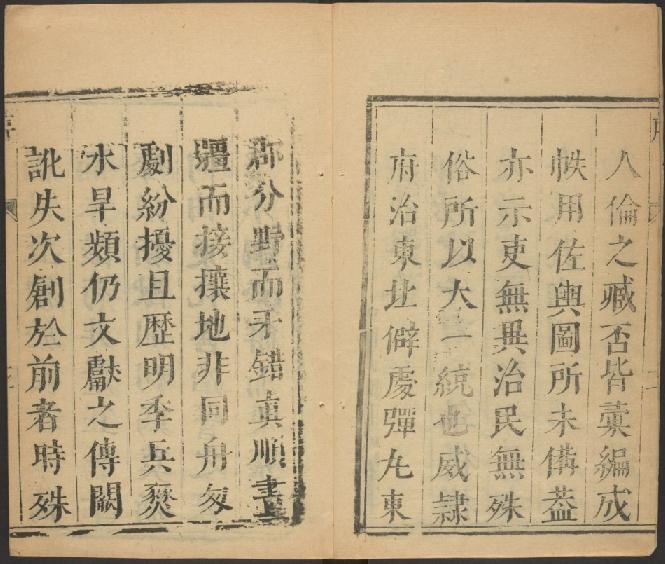 人倫之臧否皆彙編成
帙用佐輿圖所未備葢
亦示吏無異治民無殊
俗所以大一統也威隸
府治東北僻處彈丸東
郡分野而矛錯真順畫
疆而接攘地非同舟匁
劇紛擾且歷明季兵燹
水旱頻仍文獻之傳闕
訛失次創於前者時殊